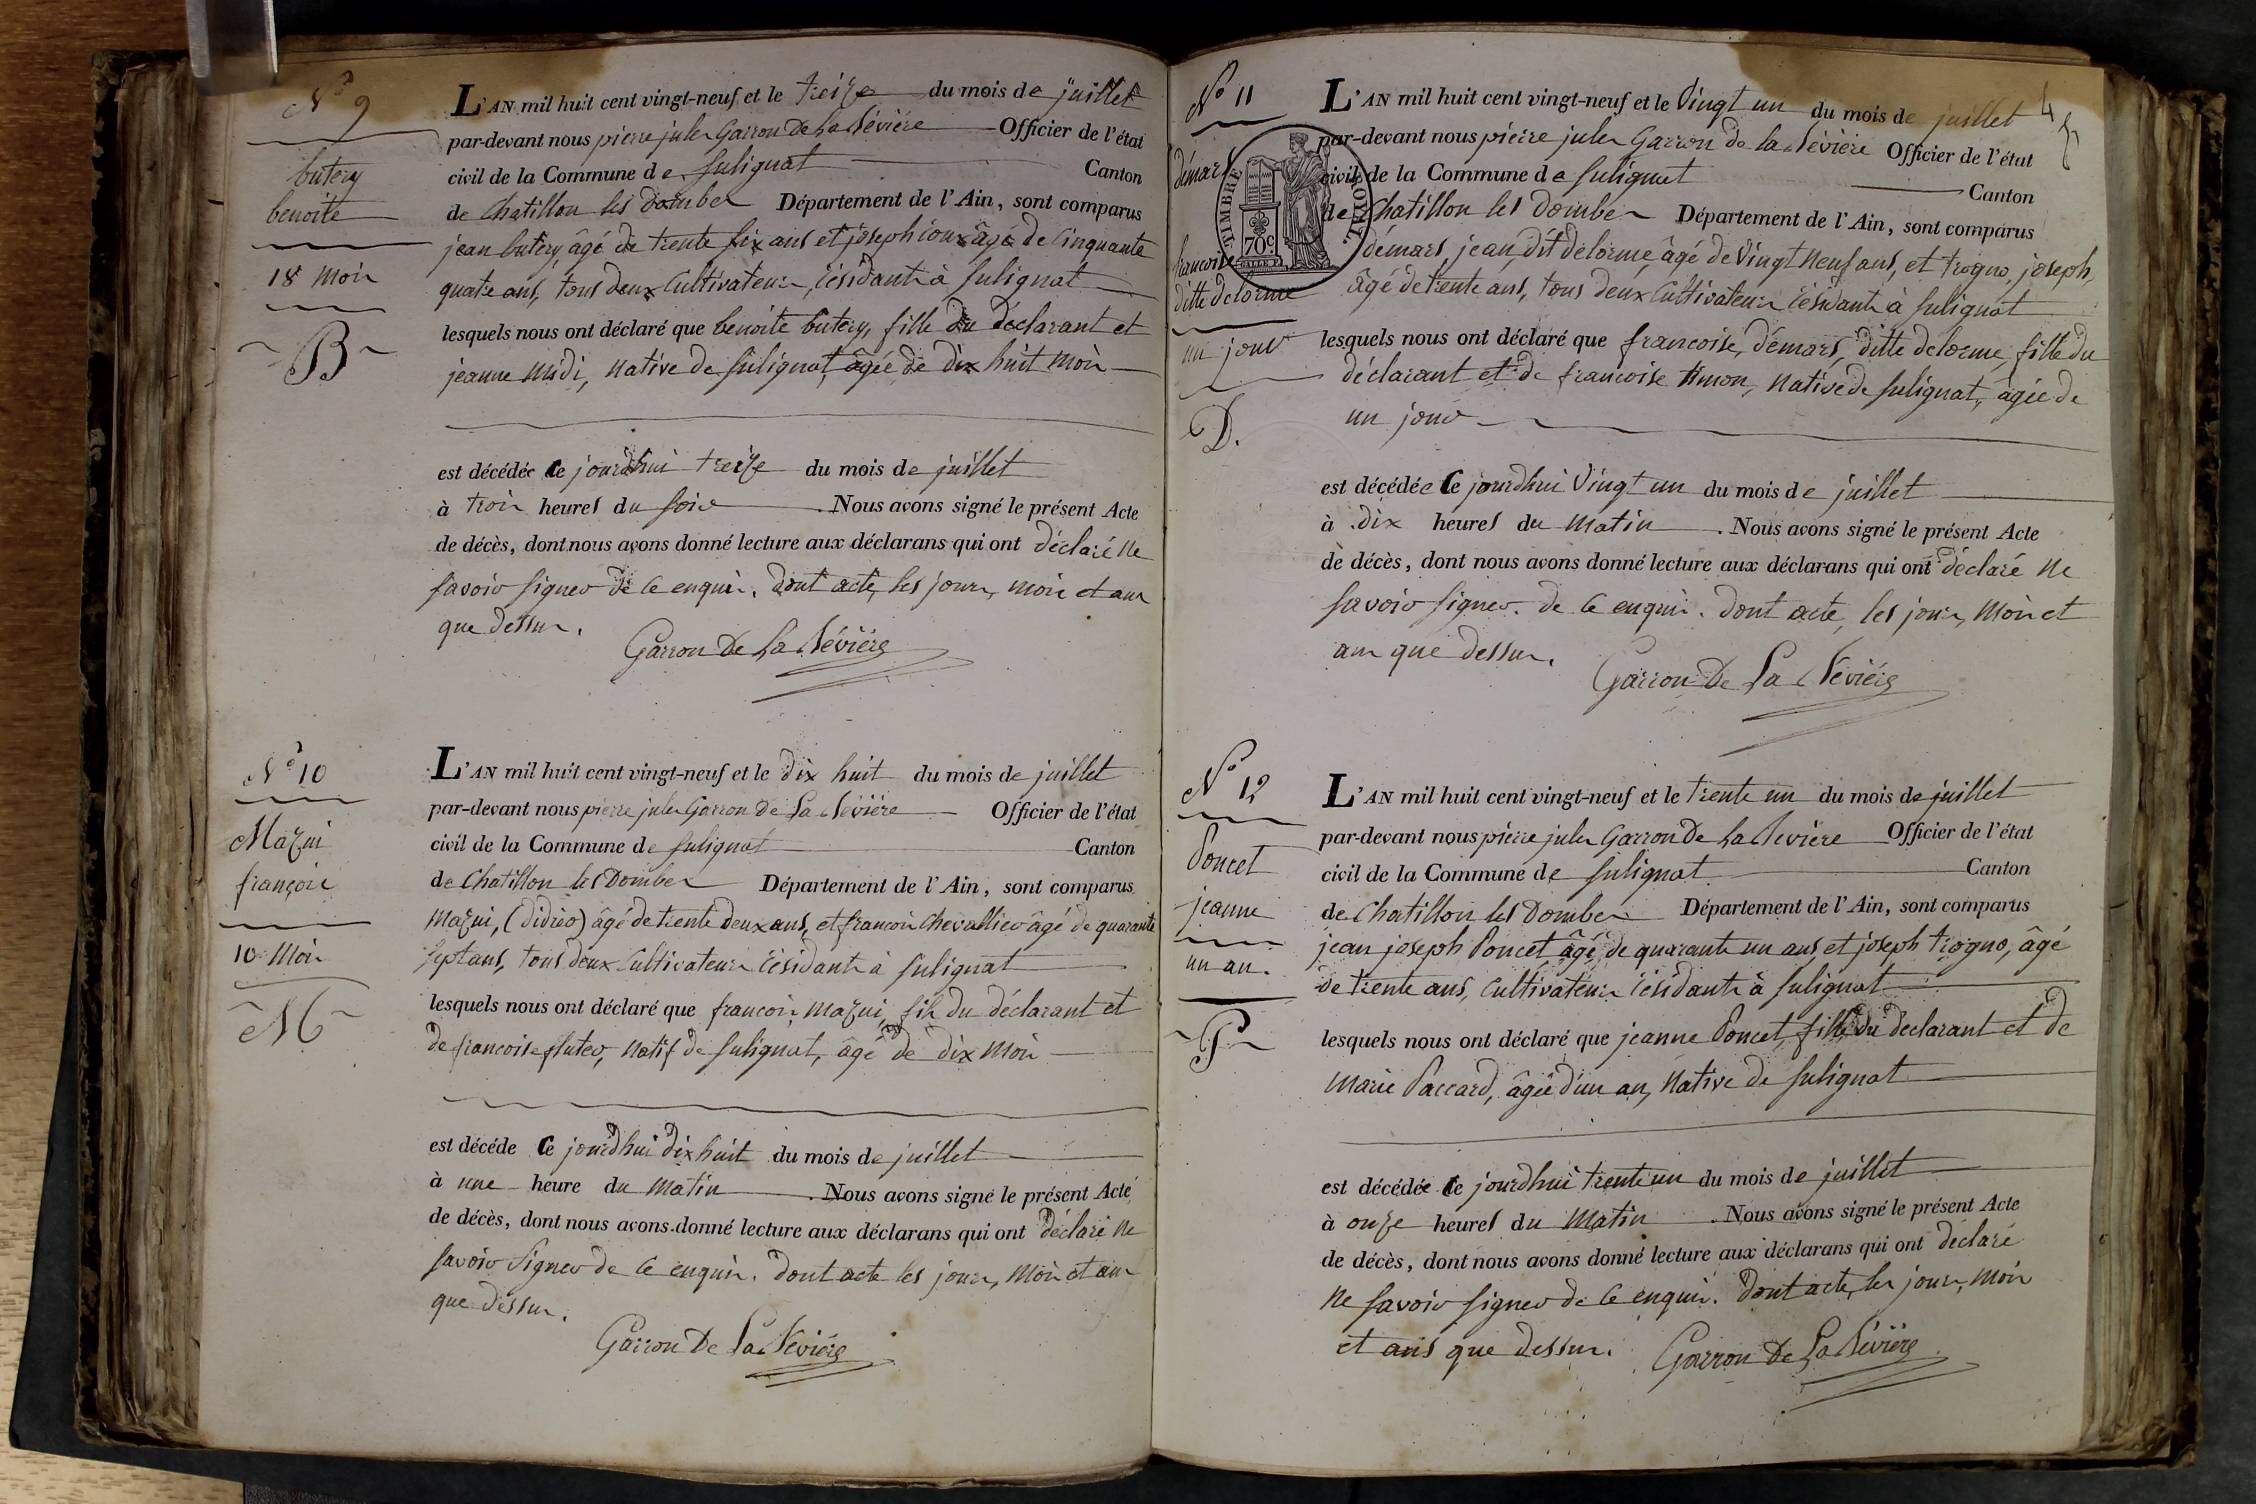 N° 9
butery
benoite
18 mois
B
L'AN mil huit cent vingt-neuf et le treize du mois de juillet
par-devant nous pierre jules Garron De La Sévière Officier de l'état
civil de la Commune de Sulignat Canton
de Chatillon les dombes Département de l'Ain, sont comparus
jean butery âgé de trente six ans et joseph âgé de Cinquante
quatre ans, tous deux Cultivateurs, résidants à Sulignat
lesquels nous ont déclaré que benoite butery, fille du déclarant et
jeanne midi, native de Sulignat, âgée de dix huit mois
est décédée Ce jourdhui treize du mois de juillet
à trois heures du soir. Nous avons signé le présent Acte
de décès, dont nous avons donné lecture aux déclarans qui ont déclaré ne
savoir signer de ce enquis. Dont acte, les jours, mois et ans
que dessus.
Garron De La Sévière
N° 10
Mazui
françois
10 Mois
M
L'AN mil huit cent vingt-neuf et le dix huit du mois de juillet
par-devant nous pierre jules Garron de La Sévière Officier de l'état
civil de la Commune de Sulignat Canton
de Chatillon les Dombes Département de l'Ain, sont comparus
Mazui, (didier) âgé de trente deux ans, et francois Chevallier âgé de quarante
sept ans, tous deux Cultivateurs résidants à Sulignat
lesquels nous ont déclaré que francois Mazui, fils du déclarant et
de francoise fluter, natif de Sulignat, âgé de dix mois
est décéde Ce jourdhui dix huit du mois de juillet
à une heure du matin. Nous avons signé le présent Acte
de décès, dont nous avons donné lecture aux déclarans qui ont déclaré ne
savoir signer de ce enquis. Dont acte les jours, mois et ans
que dessus.
Garron De La Sévière
4
N° 11
démars
francoise
ditte delorme
un jour
D.
TIMBRE ROYAL
70c
L'AN mil huit cent vingt-neuf et le Vingt un du mois de juillet
par-devant nous pierre jules Garron de La Sévière Officier de l'état
civil de la Commune de Sulignat
Canton
de Chatillon les Dombes Département de l'Ain, sont comparus
démars, jean, dit delorme, âgé de Vingt neuf ans, et trogno, joseph,
âgé de trente ans, tous deux Cultivateurs résidants à Sulignat
lesquels nous ont déclaré que francoise, démars, ditte delorme, fille du
déclarant et de francoise timon, native de Sulignat, âgée de
un jour
est décédée Ce jourdhui Vingt un du mois de juillet
à dix heures du matin. Nous avons signé le présent Acte
de décès, dont nous avons donné lecture aux déclarans qui ont déclaré ne
savoir signer. de ce enquis. Dont acte, les jours, mois et
ans que dessus.
Garron De La Sévière
N° 12
Poncet
jeanne
un an.
P
L'AN mil huit cent vingt-neuf et le trente un du mois de juillet
par-devant nous pierre jules Garron De La Sévière Officier de l'état
civil de la Commune de Sulignat Canton
de Chatillon les Dombes Département de l'Ain, sont comparus
jean joseph Poncet, âgé de quarante un ans, et joseph trogno, âgé
de trente ans, Cultivateurs résidants à Sulignat
lesquels nous ont déclaré que jeanne Poncet, fille du déclarant et de
marie Paccard, âgée d'un an, Native de Sulignat
est décédée Ce jourdhui trente un du mois de juillet
à onze heures du matin. Nous avons signé le présent Acte
de décès, dont nous avons donné lecture aux déclarans qui ont déclaré
ne savoir signer de ce enquis. Dont acte, les jours, mois
et ans que dessus.
Garron De La Sévière